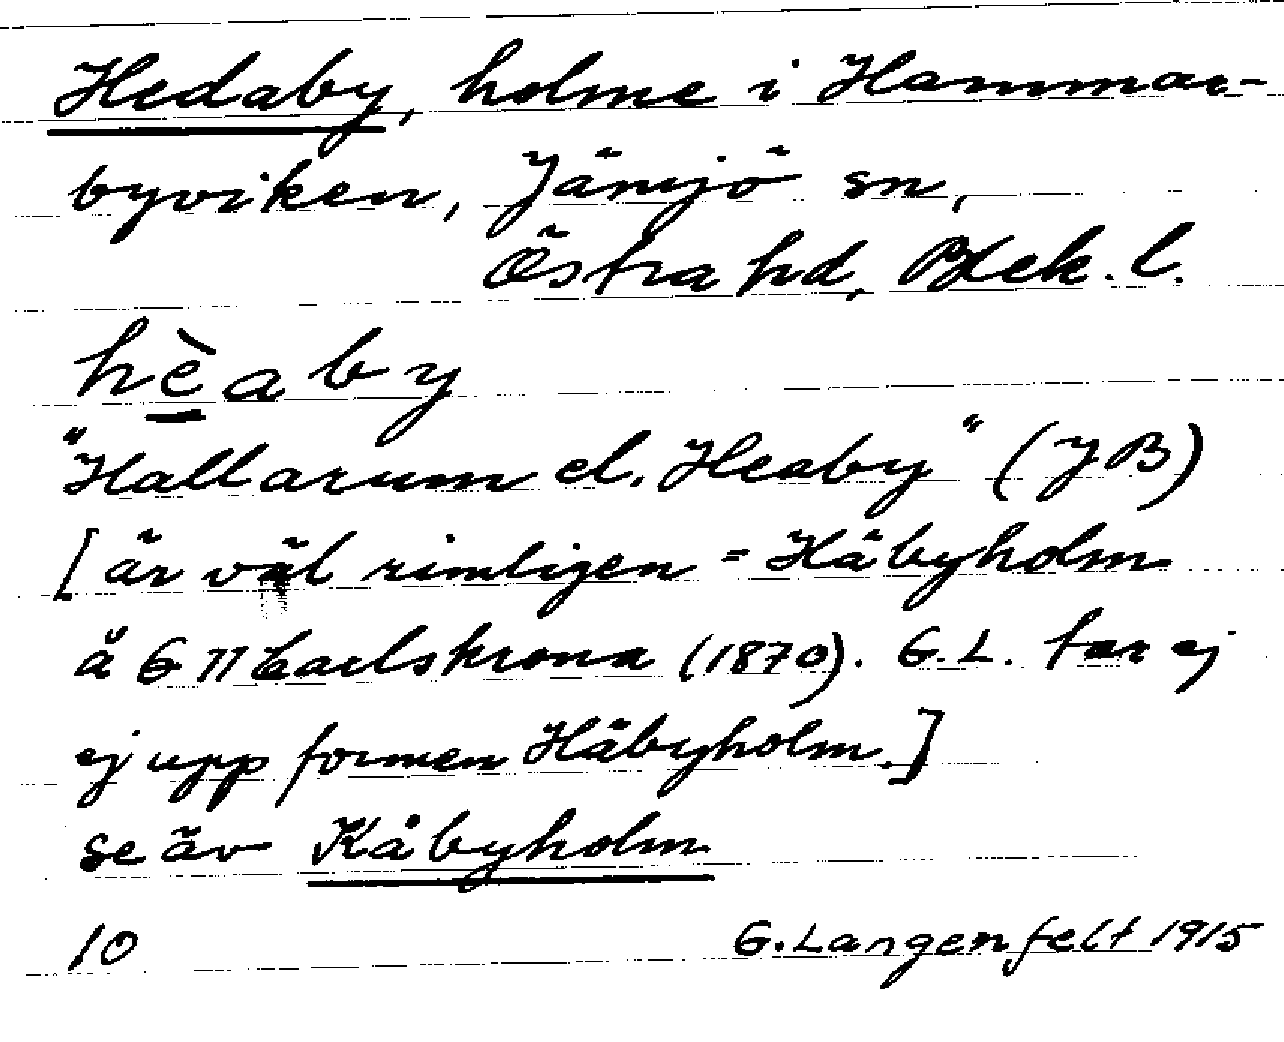 Hedaby, holme i Hammar-
byviken, Jämjö sn,
Östra hd, Blek. l.
hèaby
"Hallarum el. Heaby" (JB)
[är väl rimligen = Håbyholm
å G 11 Carlskrona (1870). G.L. tar ej
ej upp formen Håbyholm.]
se äv Kåbyholm
10 G. Langenfelt 1915